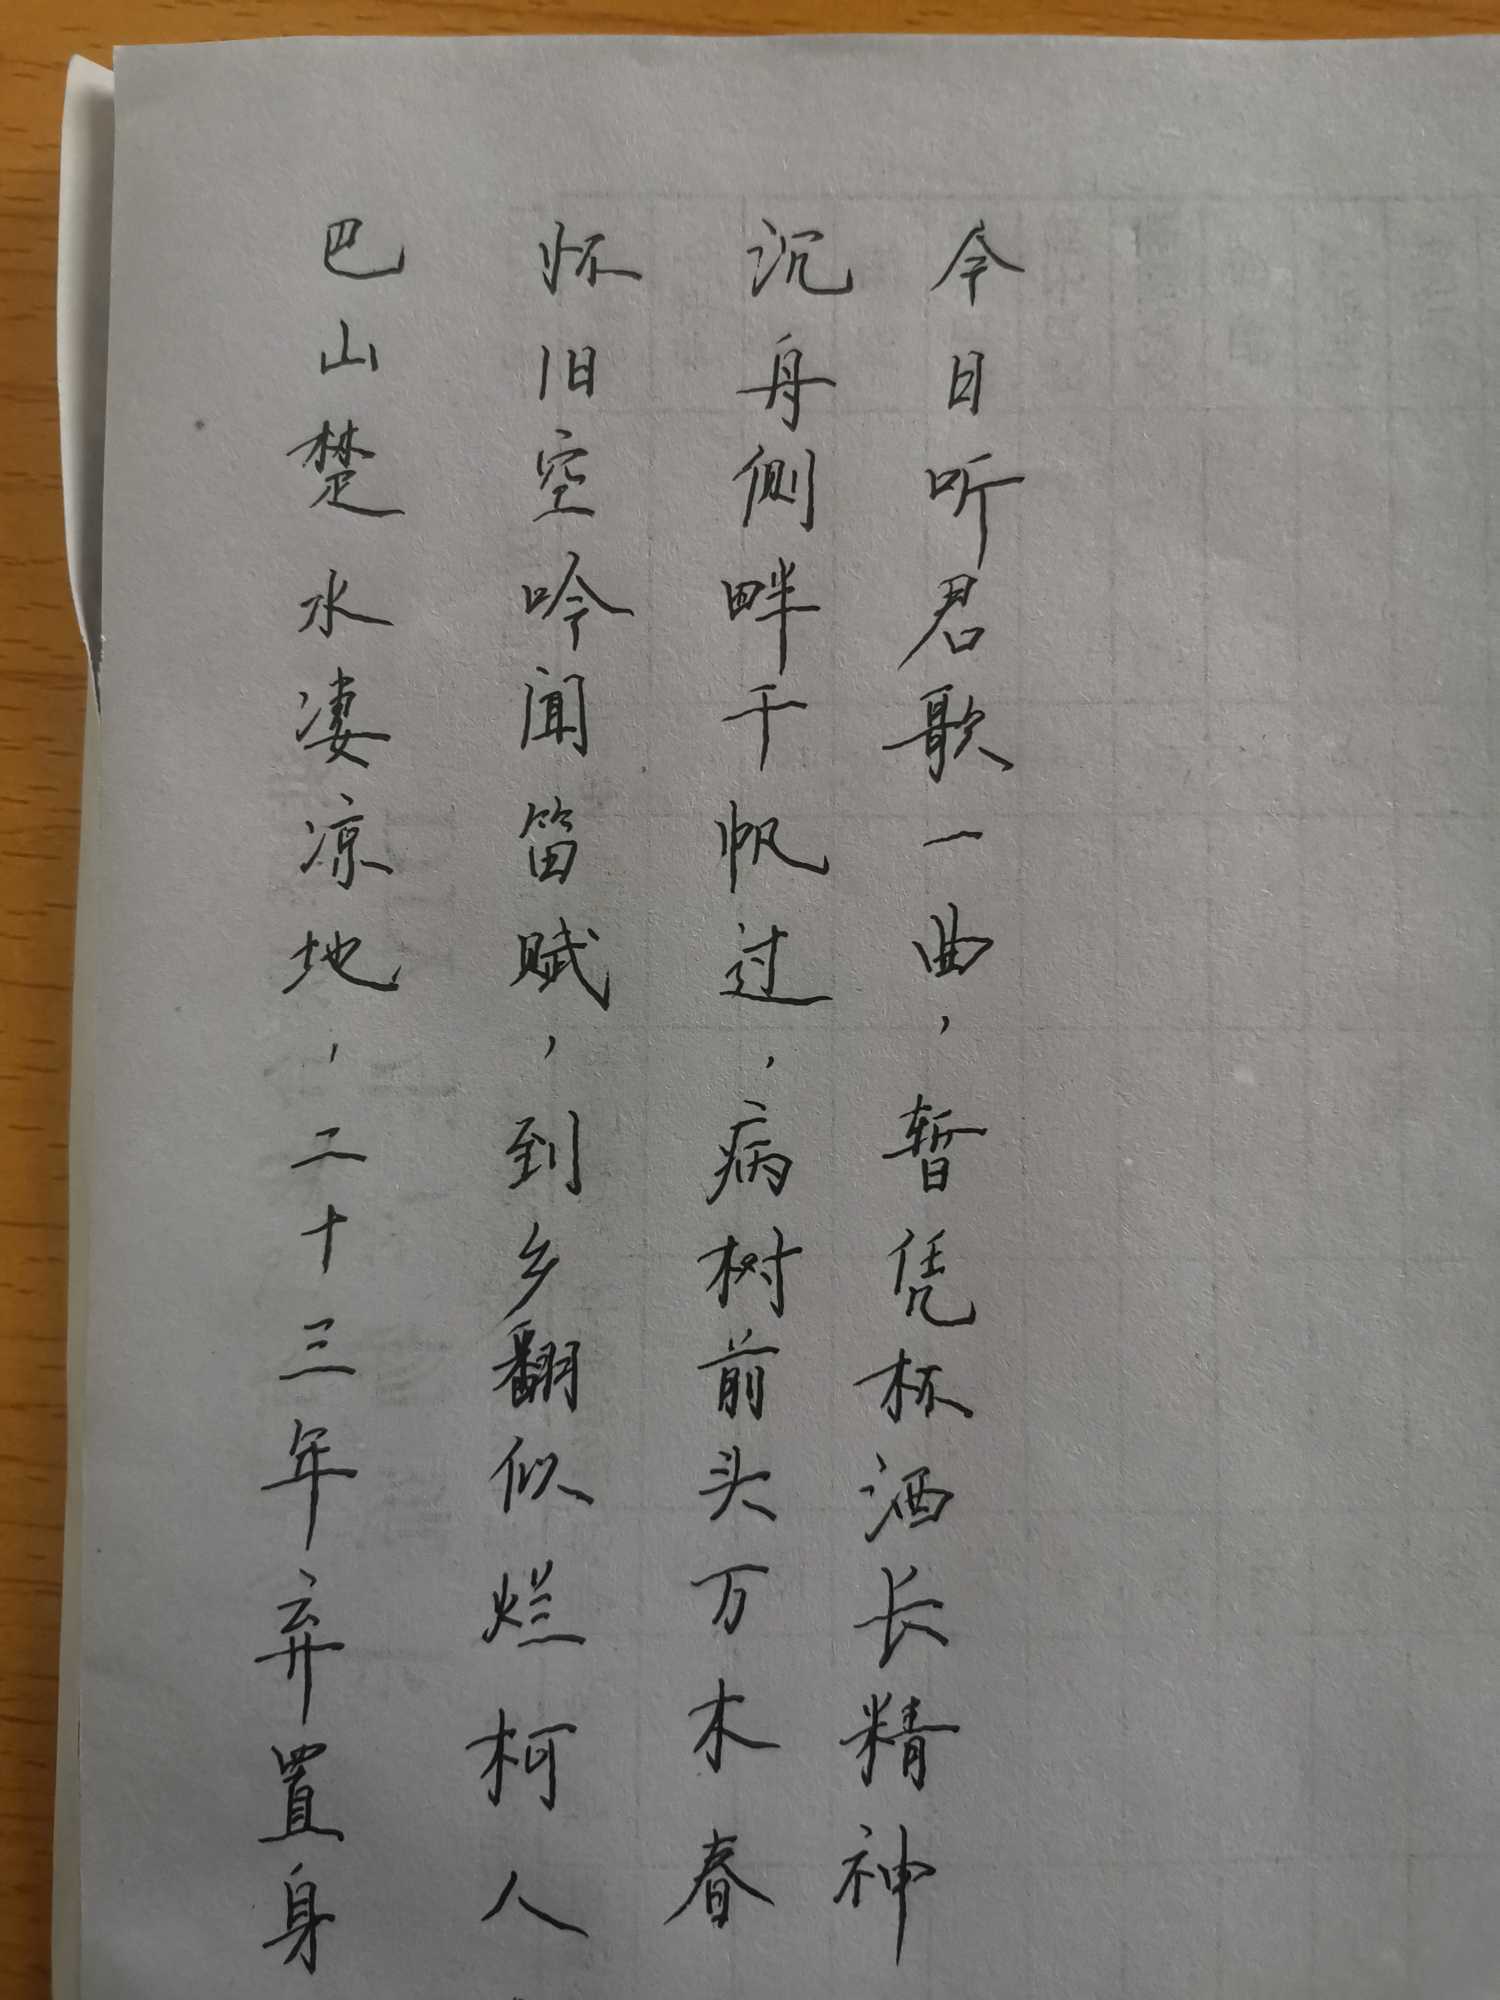 巴山楚水凄凉地，二十三年弃置身
怀旧空吟闻笛赋，到乡翻似烂柯人
沉舟侧畔千帆过，病树前头万木春
今日听君歌一曲，暂凭杯酒长精神